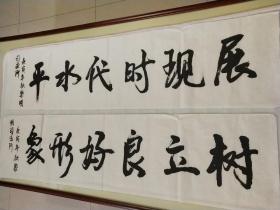 展现时代水平
树立良好形象